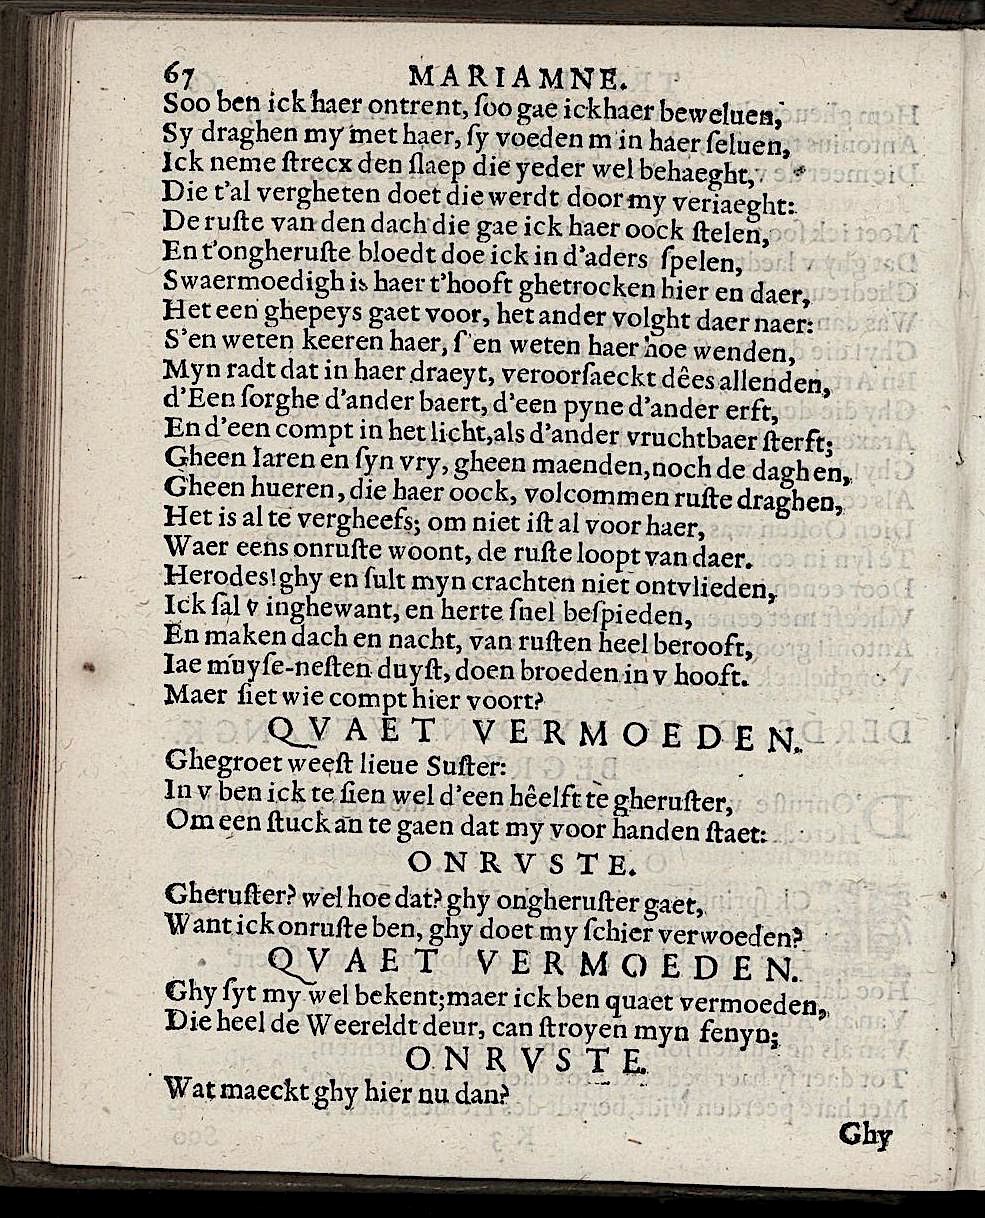 67
MARIAMNE.
Soo ben ick haer ontrent, ſoo gae ickhaer beweluen,
Sy draghen my met haer, ſy voeden m'in haer ſeluen,
Ick neme ſtrecx den ſlaep die yeder wel behaeght,
Die t'al vergheten doet die werdt door my veriaeght:
De ruſte van den dach die gae ick haer oock ſtelen,
En t'ongheruſte bloedt doe ick in d'aders ſpelen,
Swaermoedigh is haer t'hooft ghetrocken hier en daer,
Het een ghepeys gaet voor, het ander volght daer naer:
S'en weten keeren haer, ſ'en weten haer hoe wenden,
Myn radt dat in haer draeyt, veroorſaeckt dêes allenden,
d'Een ſorghe d'ander baert, d'een pyne d'ander erft,
En d'een compt in het licht, als d'ander vruchtbaer ſterft;
Gheen Iaren en ſyn vry, gheen maenden, noch de daghen,
Gheen hueren, die haer oock, volcommen ruſte draghen,
Het is al te vergheefs; om niet iſt al voor haer,
Waer eens onruſte woont, de ruſte loopt van daer.
Herodes! ghy en ſult myn crachten niet ontvlieden,
Ick ſal v inghewant, en herte ſnel beſpieden,
En maken dach en nacht, van ruſten heel berooft,
Iae muyſe-neſten duyſt, doen broeden in v hooft.
Maer ſiet wie compt hier voort?
QVAET VERMOEDEN.
Ghegroet weeſt lieue Suſter:
In v ben ick te ſien wel d'een hêelft te gheruſter,
Om een ſtuck an te gaen dat my voor handen ſtaet:
ONRVSTE.
Gheruſter? wel hoe dat? ghy ongheruſter gaet,
Want ick onruſte ben, ghy doet my ſchier verwoeden?
QVAET VERMOEDEN.
Ghy ſyt my wel bekent; maer ick ben quaet vermoeden,
Die heel de Weereldt deur, can ſtroyen myn fenyn;
ONRVSTE.
Wat maeckt ghy hier nu dan?
Ghy